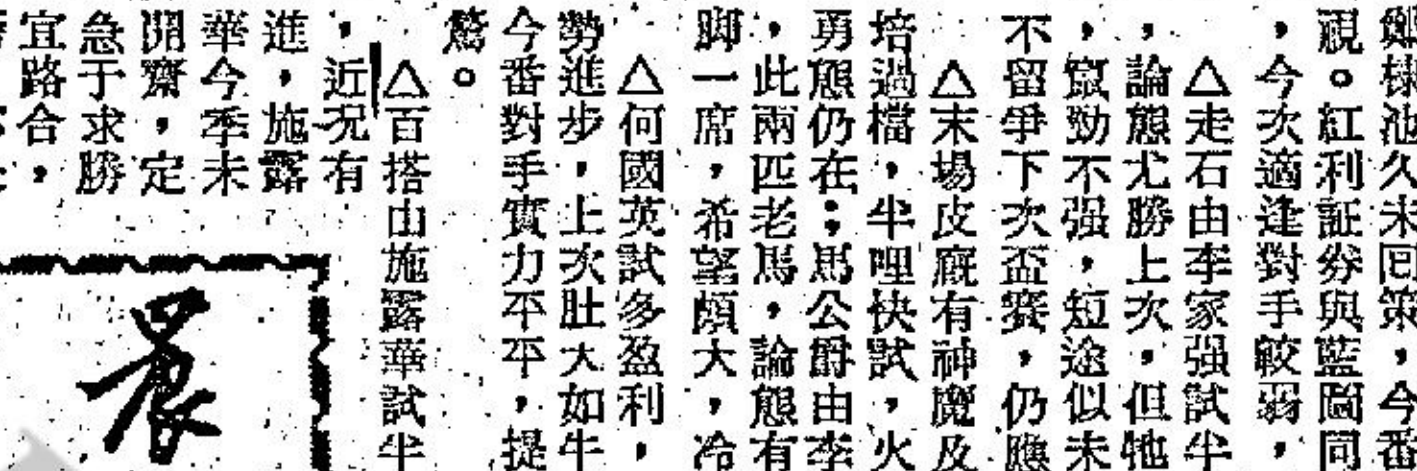 池久未囘策，今番
視。紅利証券與藍圖同
，今次適逢對手較弱，
△走石由李家强試半
，論態尤勝上次，但牠
，竄勁不强，短途似未
不留爭下次盃賽，仍應
△末塲皮廐有神魔及
培過檔，半哩快試，火
勇態仍在；馬公爵由李
，此兩匹老馬，論態有
脚一席，希望頗大，冷
△何國英試多盈利，
勢進步，上次肚大如牛
今番對手實力平平，提
驚。
△百搭由施露華試半
，近况有
進，施露
華今季未
開齋，定
急于求勝
宜路合，
晨